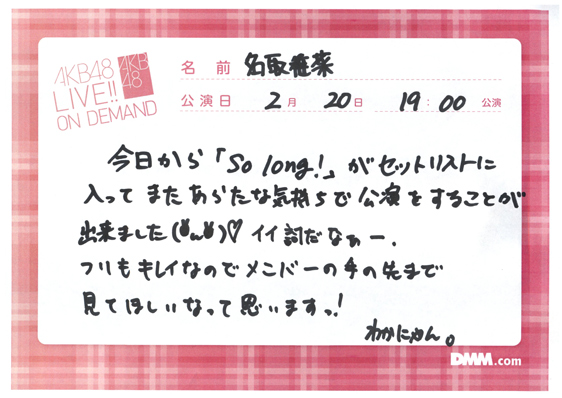 AKB48
LIVE!!
ON DEMAND
AKB
48
名前 名取稚菜
公演日 2月 20日 19:00 公演
今日から「So long!」がセットリストに
入って またあらたな気持ちで公演をすることが
出来ました(・ω・)♡ イイ詞だなぁー.
フリもキレイなのでメンバーの手の先まで
見てほしいなって思いますっ!
わかにゃん。
DMM.com